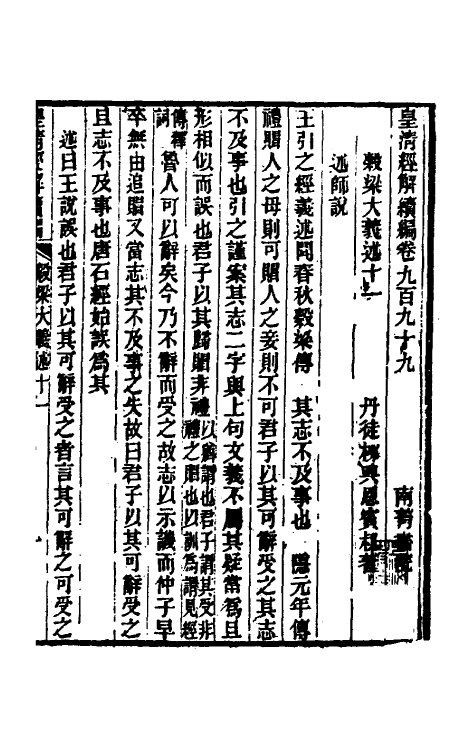 皇清經解續編卷九百九十九
南菁書院
穀梁大義述十一
丹徒柳興恩賓叔著
述師說
王引之經義述聞春秋穀梁傳 其志不及事也 隱元年傳
禮賵人之母則可賵人之妾則不可君子以其可辭受之其志
不及事也引之謹案其志二字與上句文義不屬其疑當爲且
形相似而誤也君子以其歸賵非禮以辭謂也君子謂其受非禮之賵也以訓爲謂見經
傳釋詞魯人可以辭矣今乃不辭而受之故志以示譏而仲子早
卒無由追賵又當志其不及事之失故曰君子以其可辭受之
且志不及事也唐石經始誤爲其
述曰王說誤也君子以其可辭受之者言其可辭之可受之
皇清經解續編 穀梁大義述十一 一